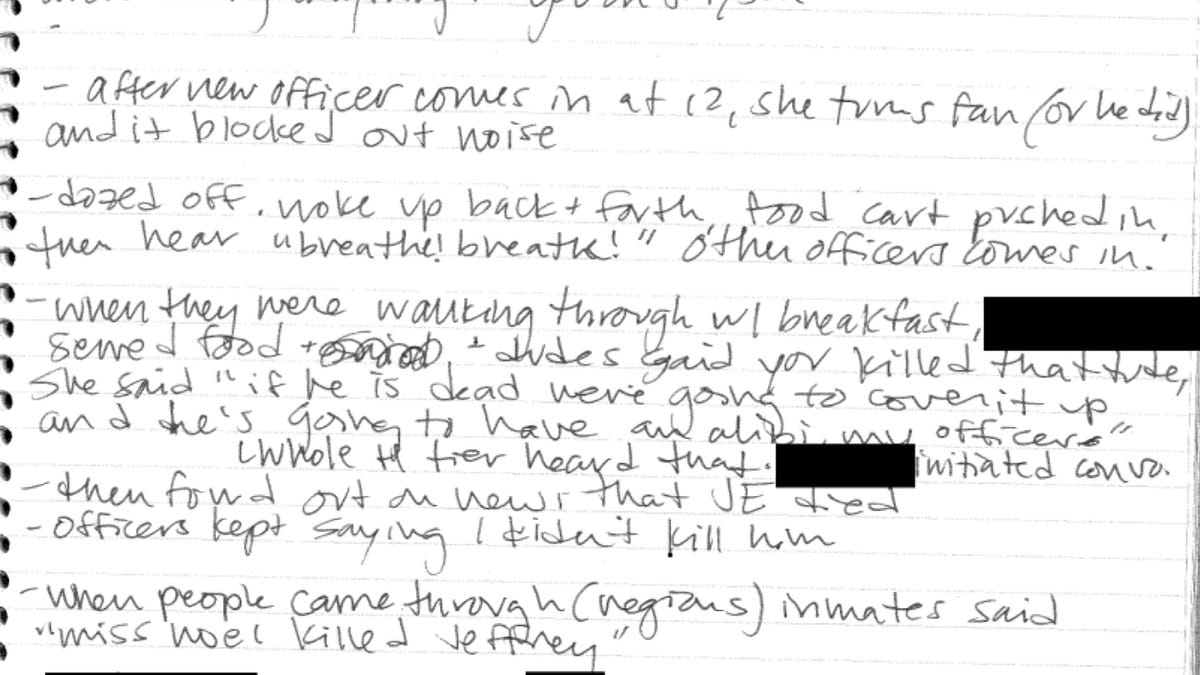 - after new officer comes in at 12, she turns fan (or he did)
and it blocked out noise
- dozed off. woke up back + forth, food cart pushed in,
then hear "breathe! breathe!" Other officers comes in.
- when they were walking through w/ breakfast,
served food + + dudes said you killed that dude,
she said "if he is dead we're going to cover it up
and he's going to have an alibi, my officers"
whole H tier heard that. initiated convo.
- then found out on news that JE died
- officers kept saying I didn't kill him
- when people came through (regions) inmates said
"miss noel killed Jeffrey"